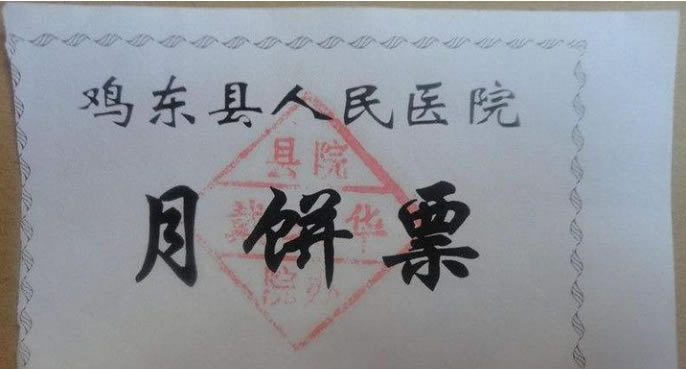 鸡东县人民医院
月饼票
县院
华
院